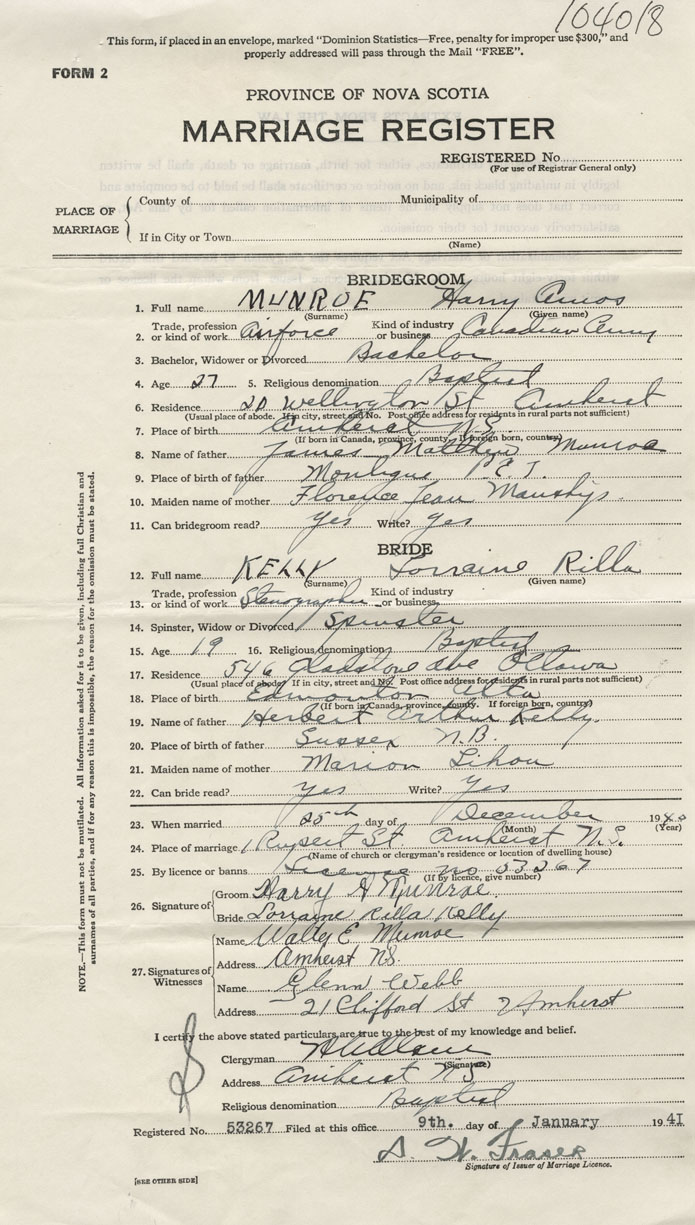 104018
This form, if placed in an envelope, marked "Dominion Statistics—Free, penalty for improper use $300," and
properly addressed will pass through the Mail "FREE".
FORM 2
PROVINCE OF NOVA SCOTIA
MARRIAGE REGISTER
REGISTERED No.
(For use of Registrar General only)
PLACE OF MARRIAGE
County of Municipality of
If in City or Town
(Name)
BRIDEGROOM
1. Full name MUNROE Harry Amos
(Surname) (Given name)
2. Trade, profession or kind of work Airforce Kind of industry or business Canadian Army
3. Bachelor, Widower or Divorced Bachelor
4. Age 27 5. Religious denomination Baptist
6. Residence 20 Wellington St Amherst
(Usual place of abode. If in city, street and No. Post office address for residents in rural parts not sufficient)
7. Place of birth Amherst N.S.
(If born in Canada, province, county. If foreign born, country)
8. Name of father James Matthew Munroe
9. Place of birth of father P.E.I.
10. Maiden name of mother Florence Jean
11. Can bridegroom read? Yes Write? Yes
BRIDE
12. Full name KELLY Lorraine Rilla
(Surname) (Given name)
13. Trade, profession or kind of work Stenographer Kind of industry or business
14. Spinster, Widow or Divorced Spinster
15. Age 19 16. Religious denomination Baptist
17. Residence 546 Gladstone Ave Ottawa
(Usual place of abode. If in city, street and No. Post office address for residents in rural parts not sufficient)
18. Place of birth Edmonton Alta
(If born in Canada, province, county. If foreign born, country)
19. Name of father Herbert Arthur Kelly.
20. Place of birth of father Sussex N.B.
21. Maiden name of mother Marion Lihou
22. Can bride read? Yes Write? Yes
23. When married 25th day of December 1940
(Month) (Year)
24. Place of marriage Rupert St Amherst N.S.
(Name of church or clergyman's residence or location of dwelling house)
25. By licence or banns License no 53267
(If by licence, give number)
26. Signature of
Groom Harry A Munroe.
Bride Lorraine Rilla Kelly
27. Signatures of Witnesses
Name E Munroe
Address Amherst NS.
Name Glenn Webb
Address 21 Clifford St Amherst
I certify the above stated particulars are true to the best of my knowledge and belief.
Clergyman
(Signature)
Address Amherst NS
Religious denomination Baptist
Registered No. 53267 Filed at this office 9th. day of January 1941
Fraser
Signature of Issuer of Marriage Licence.
[SEE OTHER SIDE]
NOTE.—This form must not be mutilated. All information asked for is to be given, including full Christian and
surnames of all parties, and if for any reason this is impossible, the reason for the omission must be stated.